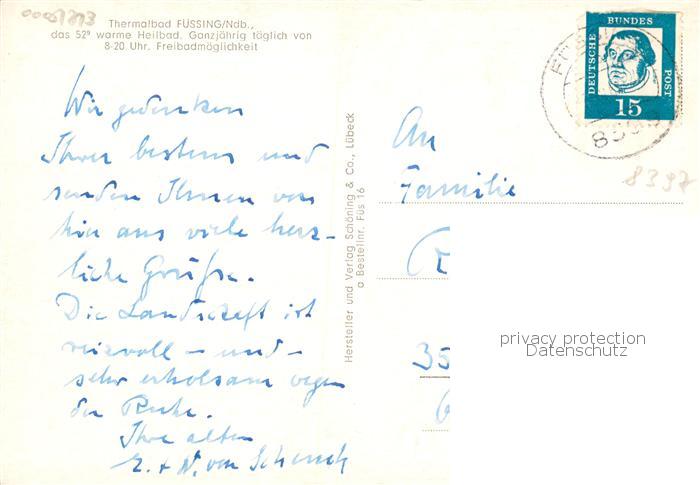 Thermalbad FÜSSING/Ndb.,
das 52⁰ warme Heilbad. Ganzjährig täglich von
8-20. Uhr. Freibadmöglichkeit
Wir gedenken
Ihrer bestens und
senden Ihnen von
hier aus viele herz-
liche Grüße.
Die Landschaft ist
reizvoll - und -
sehr erholsam wegen
der Ruhe.
Ihre alten
E. + W. von Schenck
Hersteller und Verlag Schöning & Co., Lübeck
a Bestellnr. Füs 16
DEUTSCHE
BUNDES
POST
15
An
Familie
8397
35
privacy protection
Datenschutz